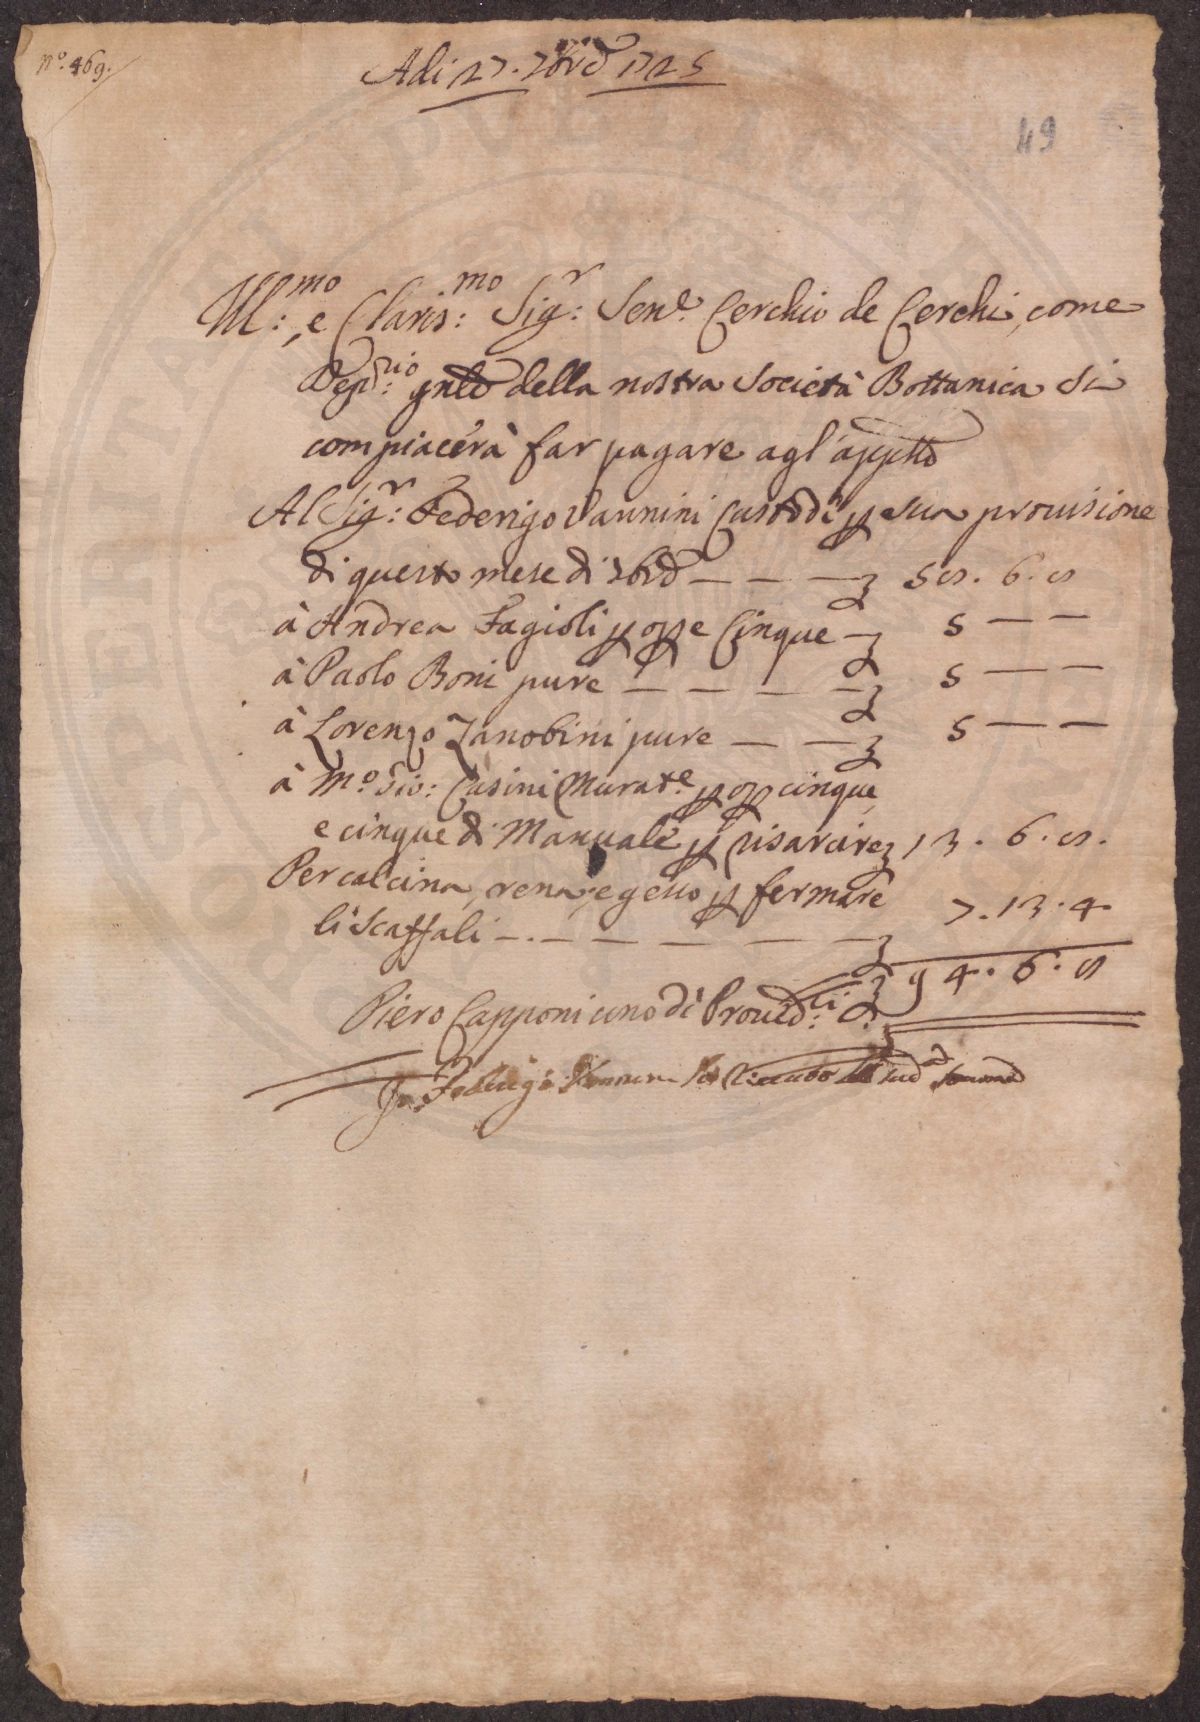 N.º 469.
Adi 27. 7bre 1725
49
Ill:mo, e Claris:mo Sig:r Sen.e Cerchio de Cerchi, come
Dep:rio gnle della nostra Società Bottanica si
compiacerà far pagare agl'appttõ
Al Sig:r Federigo Vannini Custode p sua prouisione
di questo mese di 7bre — — — 58. 6. 8
à Andrea Fagioli p opp.e Cinque — 5 — —
à Paolo Boni pure — — — — 5 — —
à Lorenzo Zanobini pure — — 5 — —
à M.º Gio: Casini Murat.e p opp cinque,
e cinque di Manuale p risarcire 13. 6. 8.
Per calcina, rena, e gesso p fermare
li Scaffali — . — — — — — 7. 13. 4
94. 6. 8
Piero Capponi uno di Proued:ri
Io Federigo Vannini ho riceuto la sud.a somma